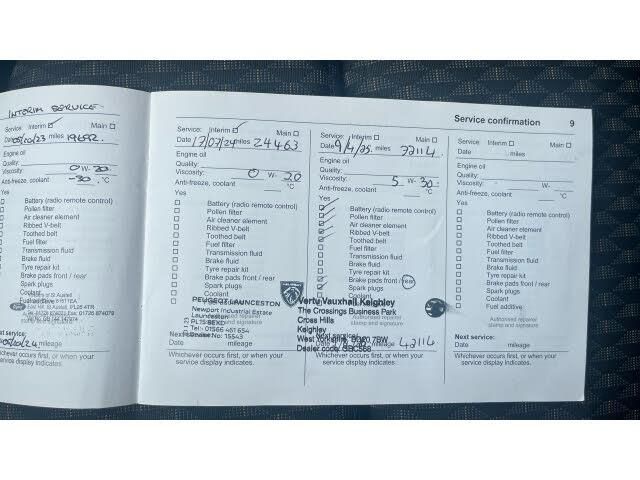 INTERIM SERVICE
Service: Interim Main
Date 05/10/23 miles
Engine oil
Quality:
Viscosity: 0 W- 20
Anti-freeze, coolant -30 °C
Yes
Battery (radio remote control)
Pollen filter
Air cleaner element
Ribbed V-belt
Toothed belt
Fuel filter
Transmission fluid
Brake fluid
Tyre repair kit
Brake pads front / rear
Spark plugs
Coolant
Next service:
mileage
Whichever occurs first, or when your
service display indicates.
Service: Interim Main
Date 17/07/24 miles 24463
Engine oil
Quality:
Viscosity: 0 W- 20
Anti-freeze, coolant °C
Yes
Battery (radio remote control)
Pollen filter
Air cleaner element
Ribbed V-belt
Toothed belt
Fuel filter
Transmission fluid
Brake fluid
Tyre repair kit
Brake pads front / rear
Spark plugs
Coolant
PEUGEOT LAUNCESTON
Newport Industrial Estate
Launceston
PL15 8EX
Tel: 01566 461 654
Dealer No: 15543
Date mileage
Whichever occurs first, or when your
service display indicates.
Service: Interim Main
Date 9/4/25. miles 33114
Engine oil
Quality:
Viscosity: 5 W- 30
Anti-freeze, coolant °C
Yes
Battery (radio remote control)
Pollen filter
Air cleaner element
Ribbed V-belt
Toothed belt
Fuel filter
Transmission fluid
Brake fluid
Tyre repair kit
Brake pads front / rear
Spark plugs
Coolant
Vertu Vauxhall Keighley
The Crossings Business Park
Cross Hills
Keighley
West Yorkshire, BD20 7BW
Dealer code:
43114
Whichever occurs first, or when your
service display indicates.
Service confirmation 9
Service: Interim Main
Date miles
Engine oil
Quality:
Viscosity: W-
Anti-freeze, coolant °C
Yes
Battery (radio remote control)
Pollen filter
Air cleaner element
Ribbed V-belt
Toothed belt
Fuel filter
Transmission fluid
Brake fluid
Tyre repair kit
Brake pads front / rear
Spark plugs
Coolant
Fuel additive
Authorised repairer
stamp and signature
Next service:
Date mileage
Whichever occurs first, or when your
service display indicates.